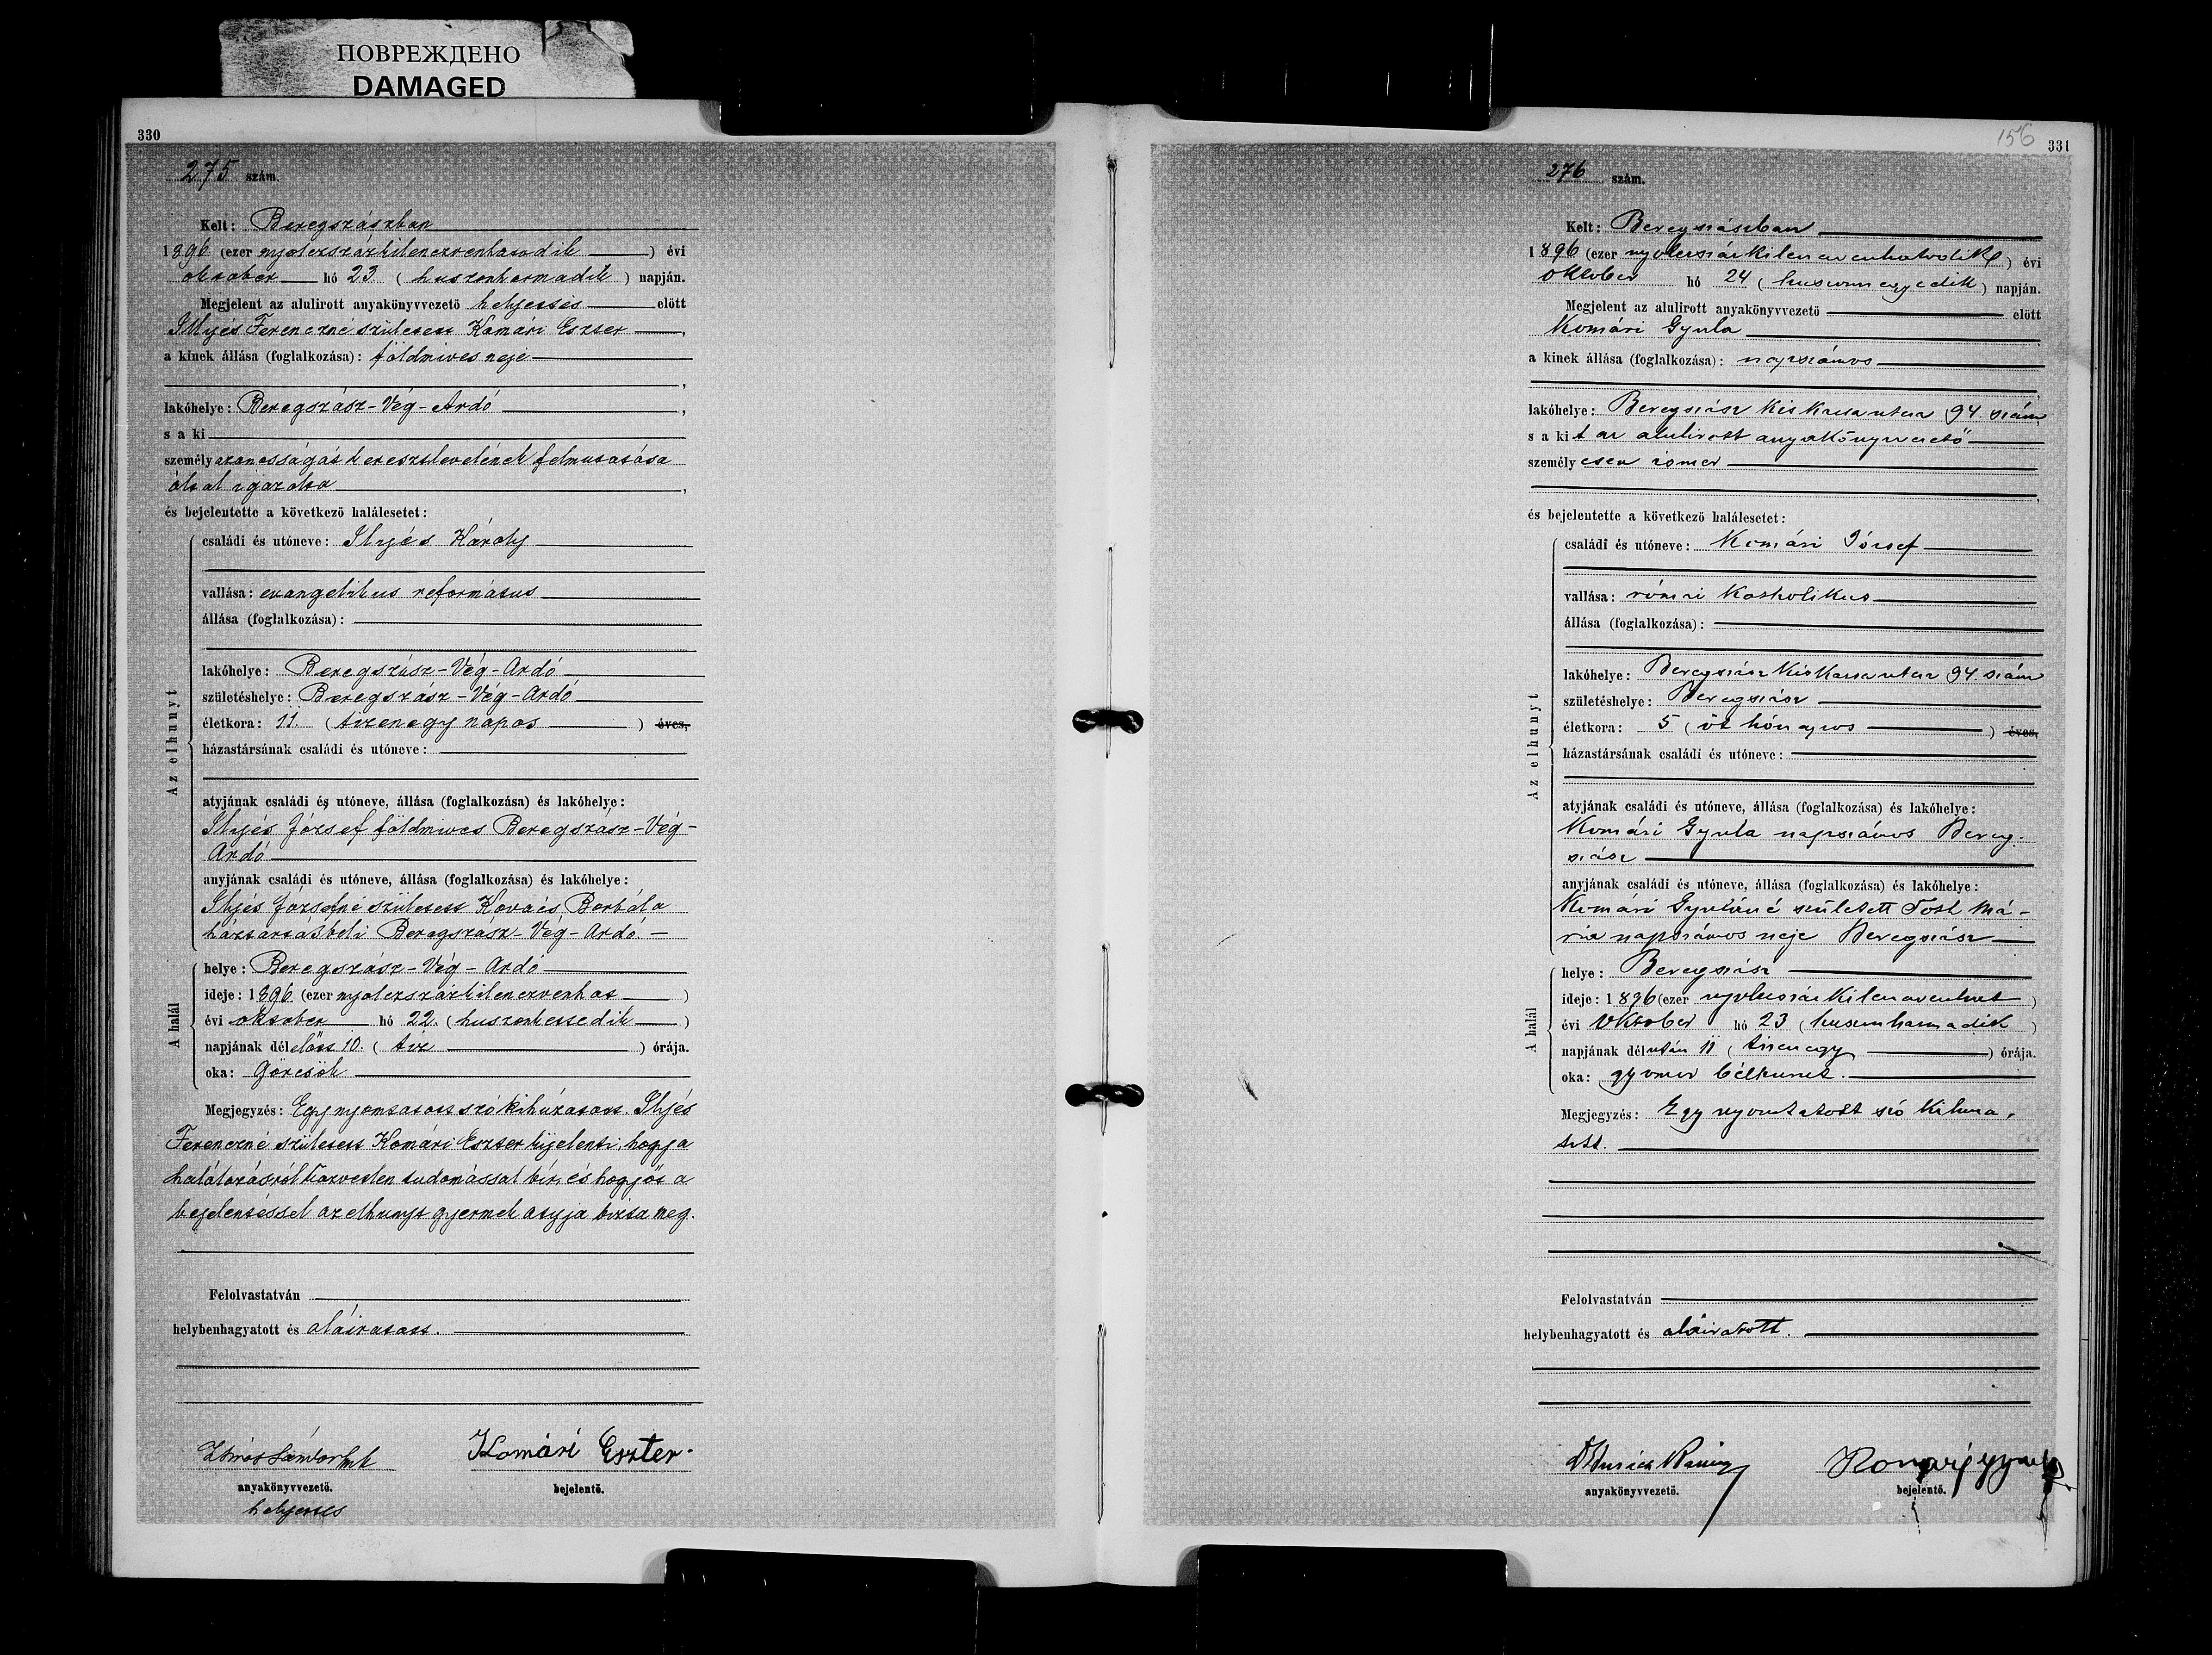 ПОВРЕЖДЕНО
DAMAGED
330
275 szám.
Kelt: Beregszászban
1896 (ezer nyolczszázkilenczvenhatodik) évi
oktober hó 23. (huszonharmadik) napján.
Megjelent az alulirott anyakönyvvezető helyettes előtt
Illyés Ferenczné született Komári Eszter,
a kinek állása (foglalkozása): földmives neje
,
lakóhelye: Beregszász-Vég-Ardó,
s a ki
személyazonosságát keresztlevelének felmutatása
által igazolta,
és bejelentette a következő halálesetet:
Az elhunyt
családi és utóneve: Illyés Károly
vallása: evangelikus református
állása (foglalkozása):
lakóhelye: Beregszász-Vég-Ardó
születéshelye: Beregszász-Vég-Ardó
életkora: 11. (tizenegy napos) éves,
házastársának családi és utóneve:
atyjának családi és utóneve, állása (foglalkozása) és lakóhelye:
Illyés József földmives Beregszász-Vég-
Ardó
anyjának családi és utóneve, állása (foglalkozása) és lakóhelye:
Illyés Józsefné született Kovács Borbála
háztartásbeli Beregszász-Vég-Ardó.
A halál
helye: Beregszász-Vég-Ardó
ideje: 1896 (ezer nyolczszázkilenczvenhat)
évi oktober hó 22. (huszonkettedik)
napjának délelőtt 10. (tiz) órája.
oka: Görcsök
Megjegyzés: Egy nyomtatott szó kihúzatott. Illyés
Ferenczné született Komári Eszter kijelenti, hogy a
halálozásról közvetlen tudomással bír, és hogy őt a
bejelentéssel az elhunyt gyermek atyja bizta meg.
Felolvastatván
helybenhagyatott és aláiratott.
Sándor
Komári Eszter.
anyakönyvvezető.
bejelentő.
helyettes
156
331
276 szám.
Kelt: Beregszászban
1896 (ezer nyolczszázkilenczvenhatodik) évi
Oktober hó 24 (huszonnegyedik) napján.
Megjelent az alulirott anyakönyvvezető előtt
Komári Gyula,
a kinek állása (foglalkozása): napszámos
,
lakóhelye: Beregszász Kis Kassa utcza 94. szám,
s a kit az alulirott anyakönyvvezető
személyesen ismer
,
és bejelentette a következő halálesetet:
Az elhunyt
családi és utóneve: Komári József
vallása: római katholikus
állása (foglalkozása):
lakóhelye: Beregszász Kis Kassa utcza 94. szám
születéshelye: Beregszász
életkora: 5 (öt hónapos) éves,
házastársának családi és utóneve:
atyjának családi és utóneve, állása (foglalkozása) és lakóhelye:
Komári Gyula napszámos Bereg-
szász
anyjának családi és utóneve, állása (foglalkozása) és lakóhelye:
Komári Gyuláné született Tóth Má-
ria napszámos neje Beregszász
A halál
helye: Beregszász
ideje: 1896 (ezer nyolczszázkilenczvenhat)
évi Oktober hó 23 (huszonharmadik)
napjának délután 11 (tizenegy) órája.
oka: gyomor bélhurut.
Megjegyzés: Egy nyomtatott szó kihúza-
tott.
Felolvastatván
helybenhagyatott és aláiratott.
anyakönyvvezető.
bejelentő.